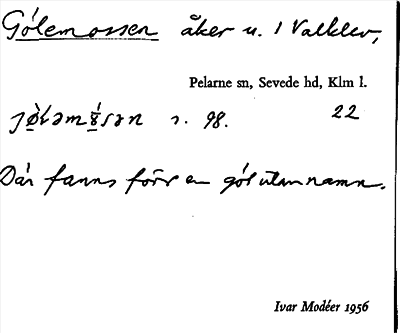 Gölemossen åker u. 1 Valklev,
Pelarne sn, Sevede hd, Klm l.
s. 98. 22
Där fanns förr en göl utan namn.
Ivar Modéer 1956